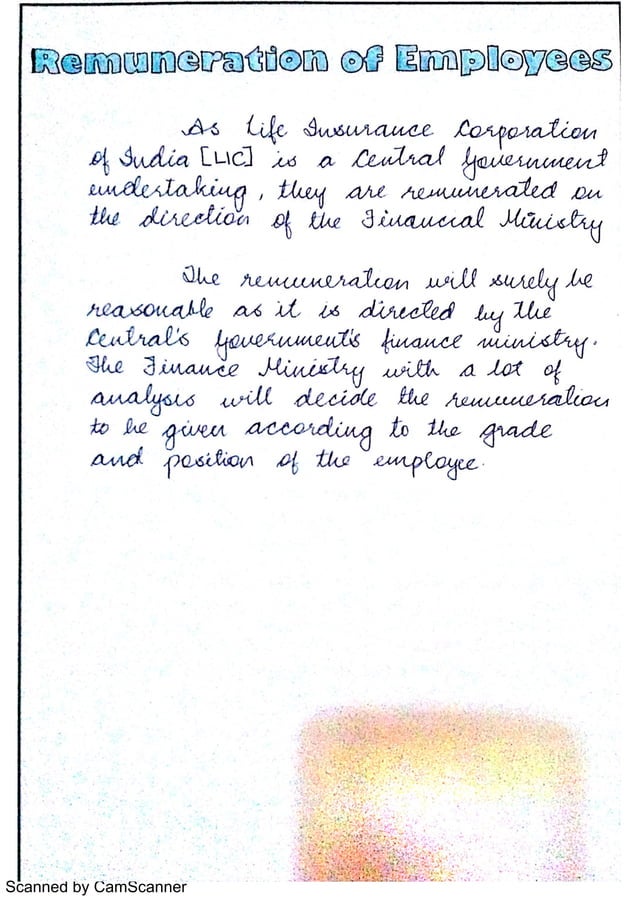 Remuneration of Employees
As Life Insurance Corporation
of India [LIC] is a Central Government
undertaking, they are remunerated on
the direction of the Financial Ministry
The remuneration will surely be
reasonable as it is directed by the
Central's Government's finance ministry.
The Finance Ministry with a lot of
analysis will decide the remuneration
to be given according to the grade
and position of the employee.
Scanned by CamScanner